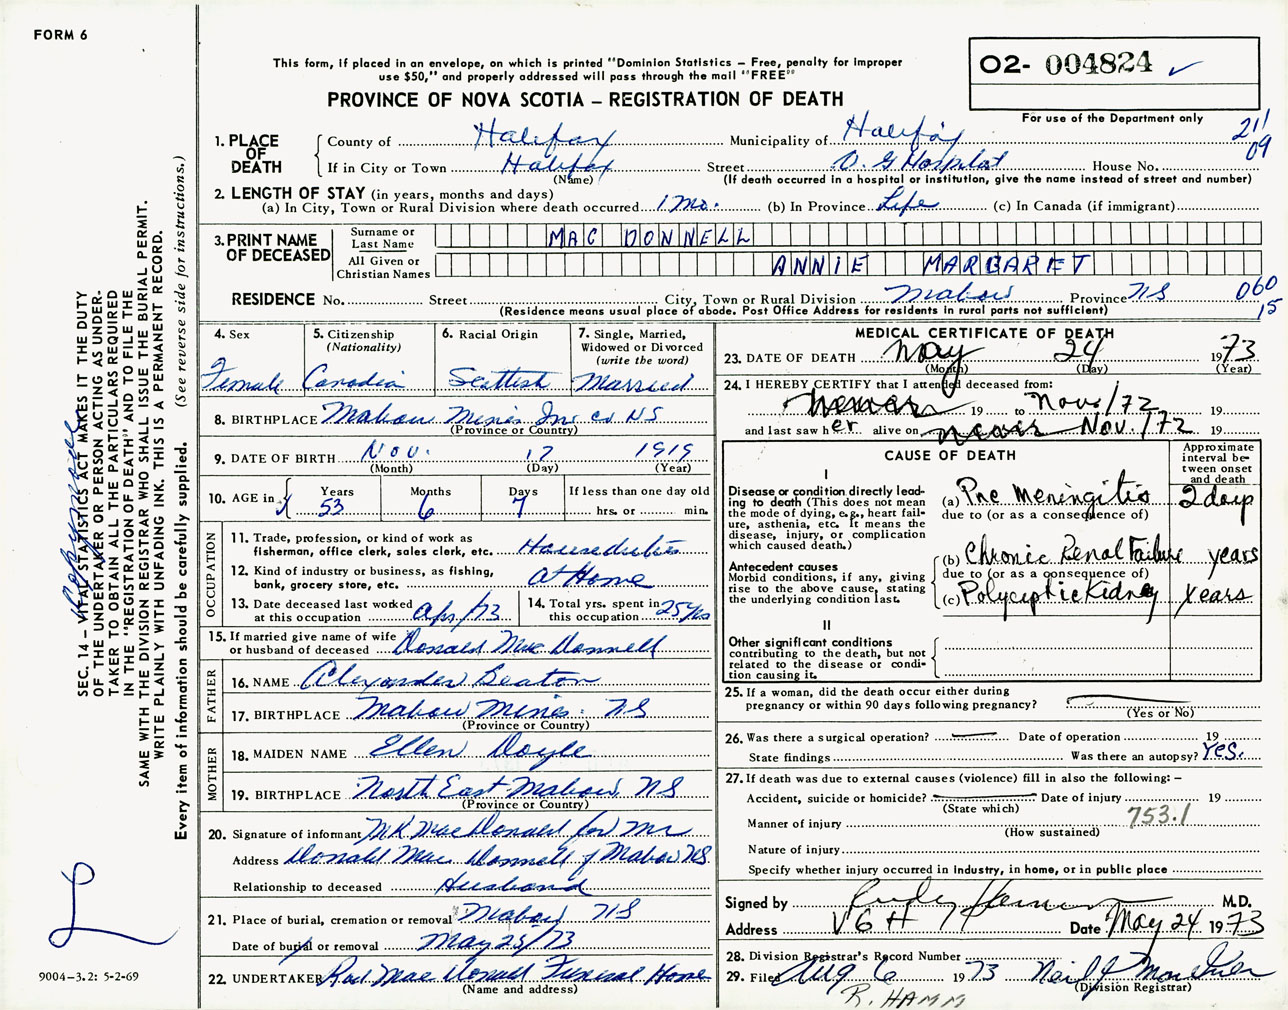 FORM 6
This form, if placed in an envelope, on which is printed "Dominion Statistics – Free, penalty for improper
use $50," and properly addressed will pass through the mail "FREE"
PROVINCE OF NOVA SCOTIA – REGISTRATION OF DEATH
O2- 004824 ✓
For use of the Department only
211
09
1. PLACE OF DEATH
County of Halifax Municipality of Halifax
If in City or Town Halifax Street V. G Hospital House No.
(Name) (If death occurred in a hospital or institution, give the name instead of street and number)
2. LENGTH OF STAY (in years, months and days)
(a) In City, Town or Rural Division where death occurred 1 Mo. (b) In Province Life (c) In Canada (if immigrant)
3. PRINT NAME OF DECEASED
Surname or Last Name MAC DONNELL
All Given or Christian Names ANNIE MARGARET
RESIDENCE No. Street City, Town or Rural Division Mabou Province NS 060
(Residence means usual place of abode. Post Office Address for residents in rural parts not sufficient) 15
4. Sex
Female
5. Citizenship
(Nationality)
Canadian
6. Racial Origin
Scottish
7. Single, Married,
Widowed or Divorced
(write the word)
Married
8. BIRTHPLACE Mabou Mines Inv co NS
(Province or Country)
9. DATE OF BIRTH Nov. 17 1919
(Month) (Day) (Year)
10. AGE in
Years 53
Months 6
Days 7
If less than one day old
hrs. or min.
OCCUPATION
11. Trade, profession, or kind of work as
fisherman, office clerk, sales clerk, etc. Houseduties
12. Kind of industry or business, as fishing,
bank, grocery store, etc. at Home
13. Date deceased last worked
at this occupation Apr/73
14. Total yrs. spent in
this occupation 25 yrs
15. If married give name of wife
or husband of deceased Donald Mac Donnell
FATHER
16. NAME Alexander Beaton
17. BIRTHPLACE Mabou Mines. NS
(Province or Country)
MOTHER
18. MAIDEN NAME Ellen Doyle
19. BIRTHPLACE North East Mabou NS
(Province or Country)
20. Signature of informant MacDonald for Mr
Address Donald Mac Donnell of Mabou NS.
Relationship to deceased Husband
21. Place of burial, cremation or removal Mabou NS
Date of burial or removal May 25/73
22. UNDERTAKER Rod MacDonald Funeral Home
(Name and address)
MEDICAL CERTIFICATE OF DEATH
23. DATE OF DEATH May 24 1973
(Month) (Day) (Year)
24. I HEREBY CERTIFY that I attended deceased from:
19 to Nov./72 19
and last saw her alive on Nov./72 19
CAUSE OF DEATH
Approximate
interval be-
tween onset
and death
I
Disease or condition directly lead-
ing to death (This does not mean
the mode of dying, e.g., heart fail-
ure, asthenia, etc. It means the
disease, injury, or complication
which caused death.)
(a) Pne Meningitis 2 days
due to (or as a consequence of)
Antecedent causes
Morbid conditions, if any, giving
rise to the above cause, stating
the underlying condition last.
(b) Chronic Renal Failure years
due to (or as a consequence of)
(c) Polycystic Kidney years
II
Other significant conditions
contributing to the death, but not
related to the disease or condi-
tion causing it.
25. If a woman, did the death occur either during
pregnancy or within 90 days following pregnancy?
(Yes or No)
26. Was there a surgical operation? Date of operation 19
State findings Was there an autopsy? Yes.
27. If death was due to external causes (violence) fill in also the following: –
Accident, suicide or homicide? Date of injury 19
(State which)
Manner of injury 753.1
(How sustained)
Nature of injury
Specify whether injury occurred in industry, in home, or in public place
Signed by M.D.
Address V G H Date May 24 1973
28. Division Registrar's Record Number
29. Filed Aug 6 1973
(Division Registrar)
R. HAMM
SEC. 14 – VITAL STATISTICS ACT MAKES IT THE DUTY
OF THE UNDERTAKER OR PERSON ACTING AS UNDER-
TAKER TO OBTAIN ALL THE PARTICULARS REQUIRED
IN THE "REGISTRATION OF DEATH" AND TO FILE THE
SAME WITH THE DIVISION REGISTRAR WHO SHALL ISSUE THE BURIAL PERMIT.
WRITE PLAINLY WITH UNFADING INK. THIS IS A PERMANENT RECORD.
Every item of information should be carefully supplied. (See reverse side for instructions.)
9004–3.2: 5-2-69